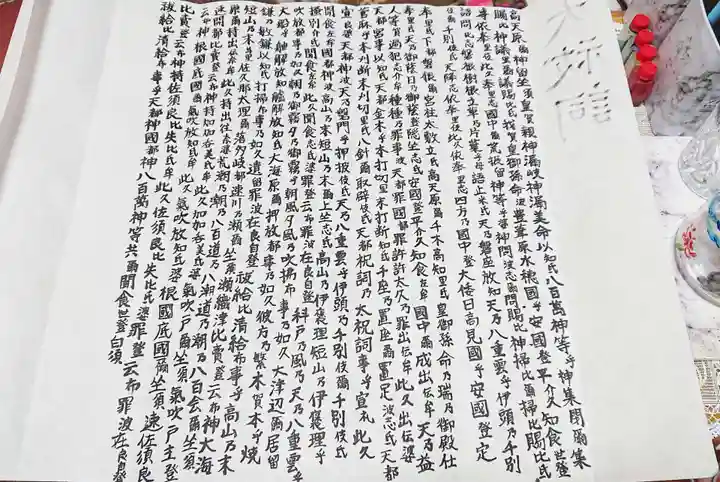 大祓詞
高天原爾神留坐須皇賀親神漏岐神漏美命以知氐八百萬神等乎神集閇爾集
賜比神議里爾議賜比氐我賀皇御孫命波豊葦原水穂國乎安國登平介久知食世登
事依奉里伎此久依奉里志國中爾荒振留神等乎婆神問波志爾問賜比神掃比爾掃比賜比氐
語問比志磐根樹根立草乃片葉乎母語止米氐天乃磐座放知天乃八重雲乎伊頭乃千別
伎爾千別伎氐天降志依奉里伎此久依奉里志四方乃國中登大倭日高見國乎安國登定
奉里氐下都磐根爾宮柱太敷立氐高天原爾千木高知里氐皇御孫命乃瑞乃御殿仕
奉里氐天乃御蔭日乃御蔭登隠坐志氐安國登平介久知食左牟國中爾成出伝牟天乃益
人等賀過犯志介牟種種乃罪事波天都罪國都罪許許太久乃罪出伝牟此久出伝婆
天都宮事以知氐天都金木乎本打切里末打断知氐千座乃置座爾置足波志氐天都
菅麻乎本刈断末刈切里氐八針爾取辟伎氐天都祝詞乃太祝詞事乎宣礼此久
宣良婆天都神波天乃磐門乎押披伎氐天乃八重雲乎伊頭乃千別伎爾千別伎氐
聞食左牟國都神波高山乃末短山乃末爾上坐志氐高山乃伊褒理短山乃伊褒理乎
撥別介氐聞食左牟此久聞食志氐婆罪登云布罪波在良自登科戸乃風乃天乃八重雲乎
吹放都事乃如久朝乃御霧夕乃御霧乎朝風夕風乃吹拂布事乃如久大津辺爾居留
大船乎舳解放知艫解放知氐大海原爾押放都事乃如久彼方乃繁木賀本乎焼
鎌乃敏鎌以知氐打掃布事乃如久遺留罪波在良自登祓給比清給布事乎高山乃末
短山乃末与里佐久那太理爾落多岐都速川乃瀬爾坐須瀬織津比賣登云布神大海
原爾持出伝奈牟此久持出往奈婆荒潮乃潮乃八百道乃八潮道乃潮乃八百會爾坐須
速開都比賣登云布神持加加呑美氐牟此久加加呑美氐婆氣吹戸爾坐須氣吹戸主登
云布神根國底國爾氣吹放知氐牟此久氣吹放知氐婆根國底國爾坐須速佐須良
比賣登云布神持佐須良比失比氐牟此久佐須良比失比氐婆罪登云布罪波在良自登
祓給比清給布事乎天都神國都神八百萬神等共爾聞食世登白須